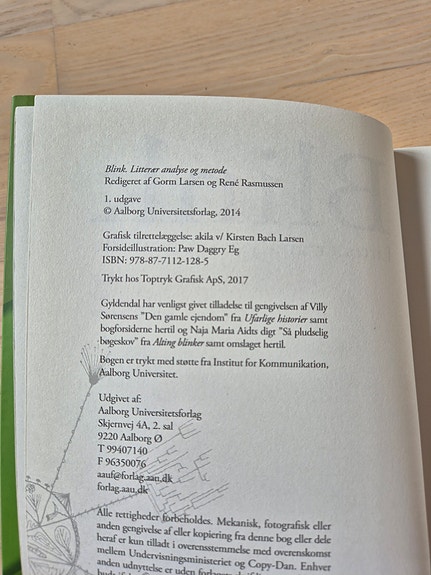 Blink. Litterær analyse og metode
Redigeret af Gorm Larsen og René Rasmussen
1. udgave
© Aalborg Universitetsforlag, 2014
Grafisk tilrettelæggelse: akila v/ Kirsten Bach Larsen
Forsideillustration: Paw Daggry Eg
ISBN: 978-87-7112-128-5
Trykt hos Toptryk Grafisk ApS, 2017
Gyldendal har venligst givet tilladelse til gengivelsen af Villy
Sørensens ”Den gamle ejendom” fra Ufarlige historier samt
bogforsiderne hertil og Naja Maria Aidts digt ”Så pludselig
bøgeskov” fra Alting blinker samt omslaget hertil.
Bogen er trykt med støtte fra Institut for Kommunikation,
Aalborg Universitet.
Udgivet af:
Aalborg Universitetsforlag
Skjernvej 4A, 2. sal
9220 Aalborg Ø
T 99407140
F 96350076
aauf@forlag.aau.dk
forlag.aau.dk
Alle rettigheder forbeholdes. Mekanisk, fotografisk eller
anden gengivelse af eller kopiering fra denne bog eller dele
heraf er kun tilladt i overensstemmelse med overenskomst
mellem Undervisningsministeriet og Copy-Dan. Enhver
anden udnyttelse er uden